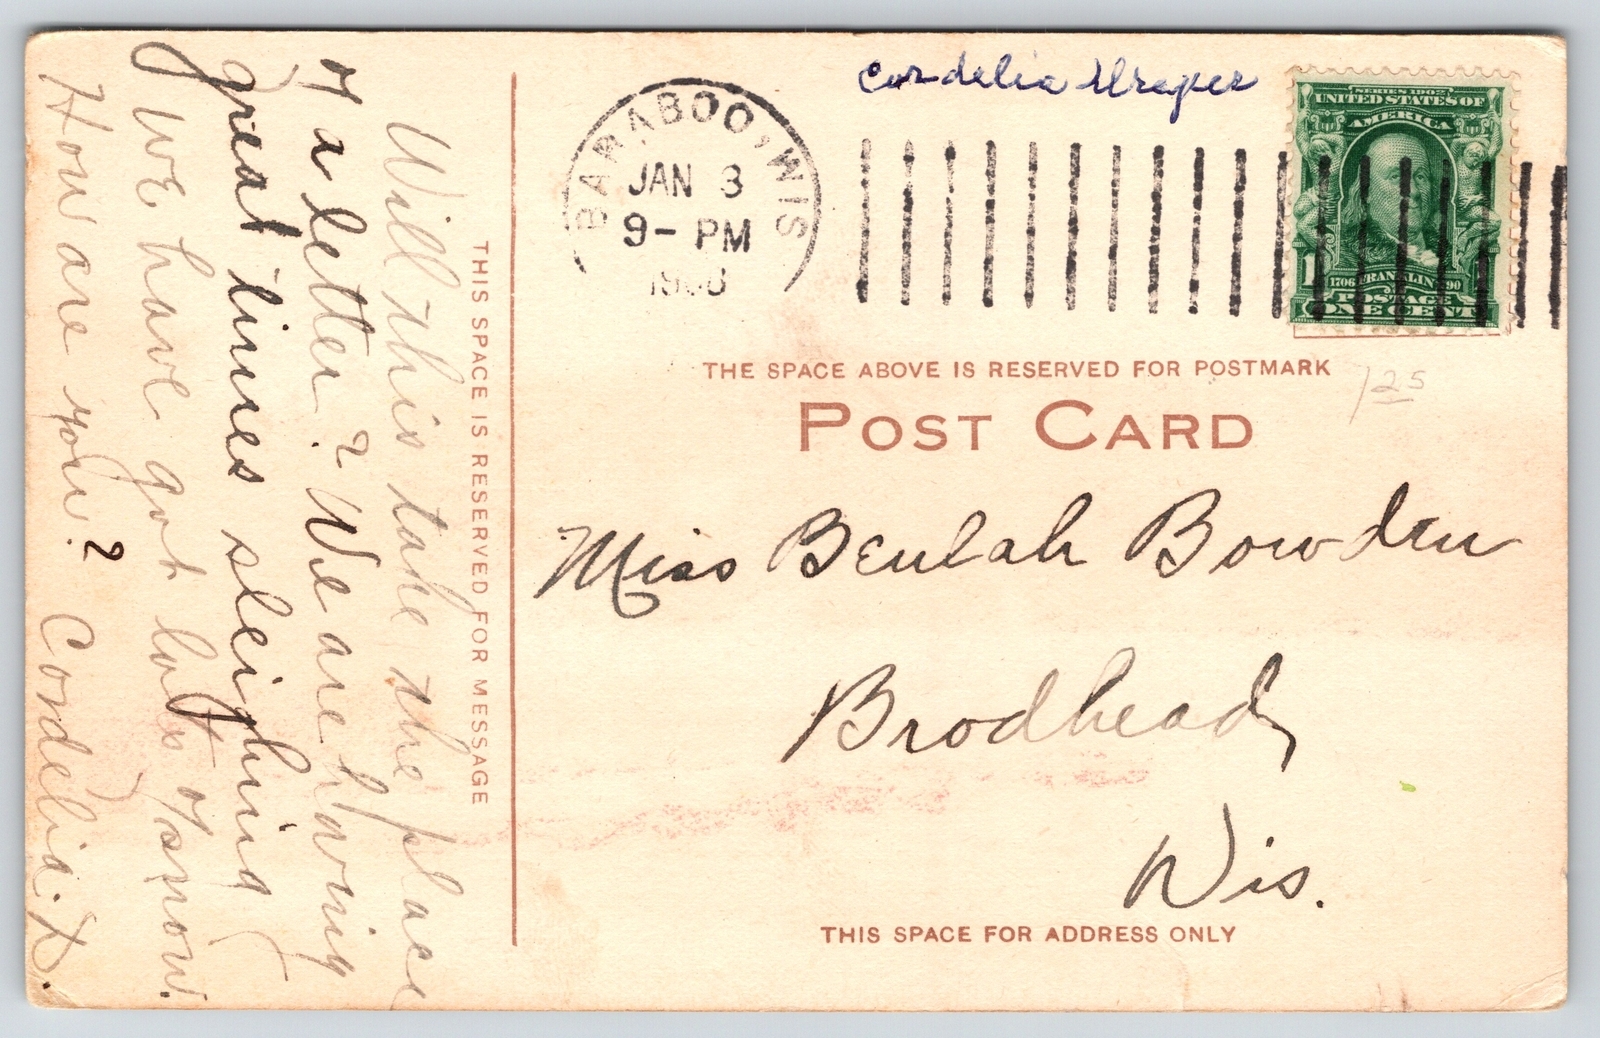 Will this take the place
of a letter? We are having
great times sleighing
We have got lots of snow.
How are you? Cordelia. D.
THIS SPACE IS RESERVED FOR MESSAGE
BARABOO, WIS
JAN 3
9- PM
Cordelia Draper
SERIES 1902
UNITED STATES OF
AMERICA
1
1706 FRANKLIN 90
POSTAGE
ONE CENT
THE SPACE ABOVE IS RESERVED FOR POSTMARK
125
POST CARD
Miss Beulah Bowden
Brodhead,
Wis.
THIS SPACE FOR ADDRESS ONLY